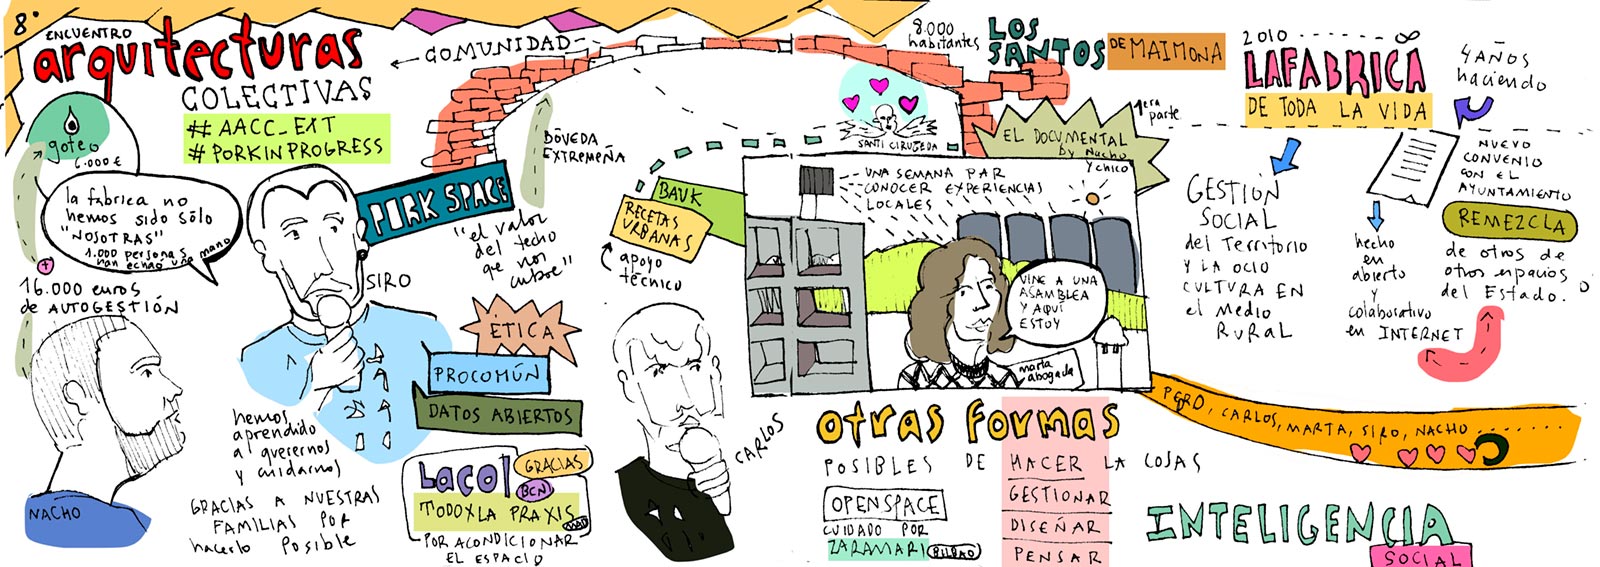 8º
ENCUENTRO
arquitecturas
COLECTIVAS
# AACC_EXT
# PORKINPROGRESS
← COMUNIDAD
goteo
6.000 €
la fabrica no
hemos sido sólo
"NOSOTRAS"
1.000 personas
han echao una mano
+
16.000 euros
de AUTOGESTIÓN
NACHO
PORK SPACE
SIRO
"el valor
del techo
qe nos
cubre"
BÓVEDA
EXTREMEÑA
ÉTICA
PROCOMÚN
DATOS ABIERTOS
hemos
aprendido
a querernos
y cuidarnos
GRACIAS A NUESTRAS
FAMILIAS POR
hacerlo posible
Lacol
GRACIAS
BCN
TODOXLA PRAXIS
MAD
POR ACONDICIONAR
EL ESPACIO
BAUK
RECETAS
URBANAS
apoyo
técnico
CARLOS
8.000
habitantes
LOS
SANTOS
DE MAIMONA
SANTI CIRUGEDA
1era
parte
EL DOCUMENTAL
by Nacho
y chico
UNA SEMANA PAR
CONOCER EXPERIENCIAS
LOCALES
VINE A UNA
ASAMBLEA
Y AQUÍ
ESTOY
marta
abogada
otras formas
POSIBLES DE HACER LA COSAS
GESTIONAR
DISEÑAR
PENSAR
OPENSPACE
CUIDADO POR
ZARAMARI
BILBAO
2010 ------ ∞
LAFABRICA
DE TODA LA VIDA
4 AÑOS
haciendo
GESTIÓN
SOCIAL
del Territorio
Y LA OCIO
CULTURA EN
el Medio
RURAL
NUEVO
CONVENIO
CON EL
AYUNTAMIENTO
REMEZCLA
de otros de
otros espacios
del Estado.
hecho
en
abierto
y
colaborativo
en INTERNET
CARLOS, MARTA, SIRO, NACHO ........
INTELIGENCIA
SOCIAL